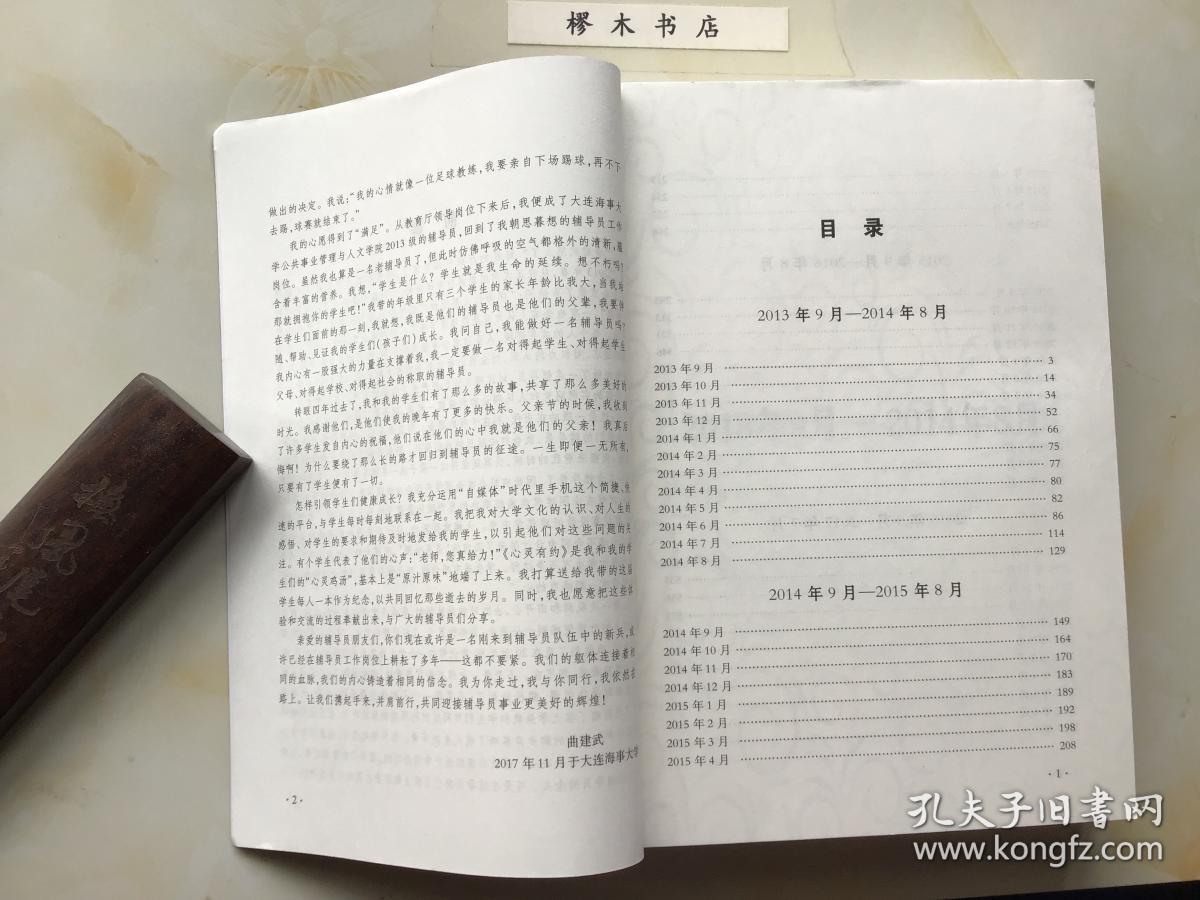 樛木书店
做出的决定。我说:“我的心情就像一位足球教练,我要亲自下场踢球,再不下
去踢,球赛就结束了。”
我的心愿得到了“满足”。从教育厅领导岗位下来后,我便成了大连海事大
学公共事业管理与人文学院2013级的辅导员,回到了我朝思暮想的辅导员工作
岗位。虽然我也算是一名老辅导员了,但此时仿佛呼吸的空气都格外的清新,蕴
含着丰富的营养。我想,“学生是什么?学生就是我生命的延续。想不朽吗?
那就拥抱你的学生吧!”我带的年级里只有三个学生的家长年龄比我大,当我站
在学生们面前的那一刻,我就想,我既是他们的辅导员也是他们的父辈,我要伴
随、帮助、见证我的学生们(孩子们)成长。我问自己,我能做好一名辅导员吗?
我内心有一股强大的力量在支撑着我,我一定要做一名对得起学生、对得起学生
父母、对得起学校、对得起社会的称职的辅导员。
转眼四年过去了,我和我的学生们有了那么多的故事,共享了那么多美好的
时光。我感谢他们,是他们使我的晚年有了更多的快乐。父亲节的时候,我收到
了许多学生发自内心的祝福,他们说在他们的心中我就是他们的父亲!我真后
悔啊!为什么要绕了那么长的路才回归到辅导员的征途。一生即便一无所有,
只要有了学生便有了一切。
怎样引领学生们健康成长?我充分运用“自媒体”时代里手机这个简捷、快
速的平台,与学生每时每刻地联系在一起。我把我对大学文化的认识、对人生的
感悟、对学生的要求和期待及时地发给我的学生,以引起他们对这些问题的关
注。有个学生代表了他们的心声:“老师,您真给力!”《心灵有约》是我和我的学
生们的“心灵鸡汤”,基本上是“原汁原味”地端了上来。我打算送给我带的这届
学生每人一本作为纪念,以共同回忆那些逝去的岁月。同时,我也愿意把这些体
验和交流的过程奉献出来,与广大的辅导员们分享。
亲爱的辅导员朋友们,你们现在或许是一名刚来到辅导员队伍中的新兵,或
许已经在辅导员工作岗位上耕耘了多年——这都不要紧。我们的躯体连接着相
同的血脉,我们的内心铸造着相同的信念。我为你走过,我与你同行,我依然在
路上。让我们携起手来,并肩前行,共同迎接辅导员事业更美好的辉煌!
曲建武
2017年11月于大连海事大学
·2·
目录
2013年9月—2014年8月
2013年9月 3
2013年10月 14
2013年11月 34
2013年12月 52
2014年1月 66
2014年2月 75
2014年3月 77
2014年4月 80
2014年5月 82
2014年6月 86
2014年7月 114
2014年8月 129
2014年9月—2015年8月
2014年9月 149
2014年10月 164
2014年11月 170
2014年12月 183
2015年1月 189
2015年2月 192
2015年3月 198
2015年4月 208
·1·
孔夫子旧书网
www.kongfz.com